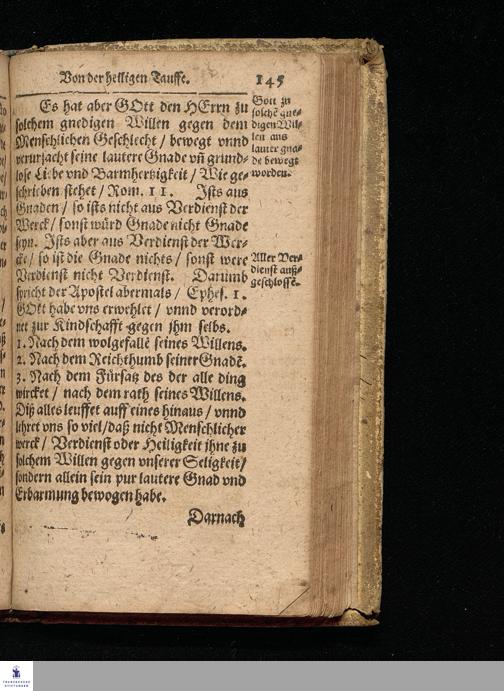 Von der heiligen Tauffe. 145
Es hat aber GOtt den HErrn zu
solchem gnedigen Willen gegen dem
Menschlichen Geschlecht / bewegt vnnd
verursacht seine lautere Gnade vñ grund-
lose Liebe vnd Barmhertzigkeit / Wie ge-
schrieben stehet / Rom. 11. Ists aus
Gnaden / so ists nicht aus Verdienst der
Werck / sonst würd Gnade nicht Gnade
seyn. Ists aber aus Verdienst der Wer-
cke / so ist die Gnade nichts / sonst were
Verdienst nicht Verdienst. Darumb
spricht der Apostel abermals / Ephes. 1.
GOtt habe vns erwehlet / vnnd verord-
net zur Kindschafft gegen jhm selbs.
1. Nach dem wolgefallē seines Willens.
2. Nach dem Reichthumb seiner Gnadē.
3. Nach dem Fürsatz des der alle ding
wircket / nach dem rath seines Willens.
Diß alles leuffet auff eines hinaus / vnnd
lehret vns so viel / daß nicht Menschlicher
werck / Verdienst oder Heiligkeit jhne zu
solchem Willen gegen vnserer Seligkeit /
sondern allein sein pur lautere Gnad vnd
Erbarmung bewogen habe.
Darnach
Gott zu
solchē gne-
digen Wil-
len aus
lauter gna-
de bewegt
worden.
Aller Ver-
dienst auß-
geschlossē.
FRANCKESCHE
STIFTUNGEN